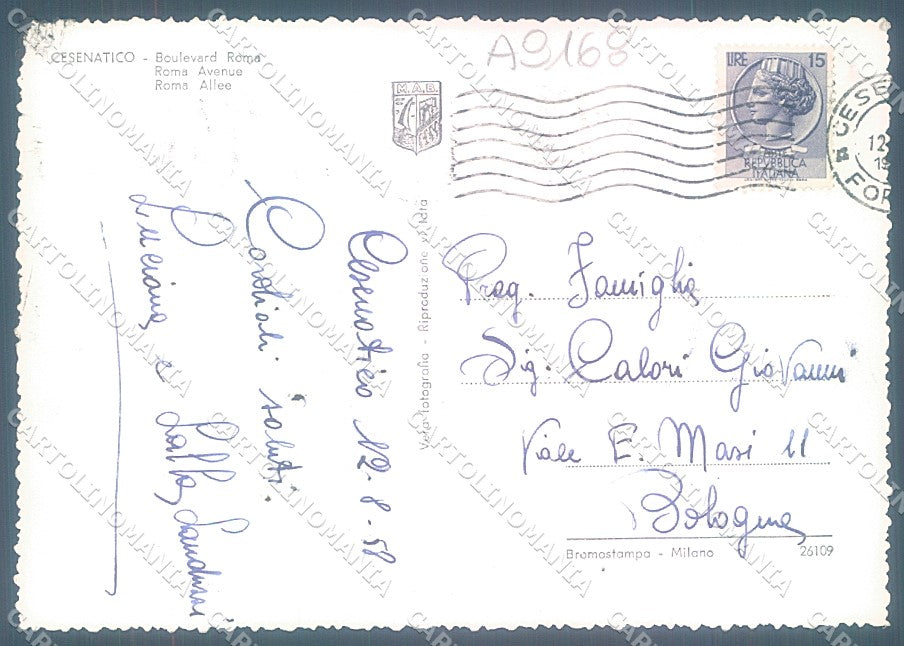 CESENATICO - Boulevard Roma
Roma Avenue
Roma Allee
A9168
M.A.B.
LIRE 15
POSTE
REPVBBLICA
ITALIANA
CESE
12
19
FOR
Cesenatico 12-8-58
Cordiali saluti.
Luciana e
Vera fotografia - Riproduzione vietata
Prag. Famiglia
Sig. Calori Giovanni
Viale E. Masi 11
Bologna
Bromostampa - Milano
26109
CARTOLINOMANIA